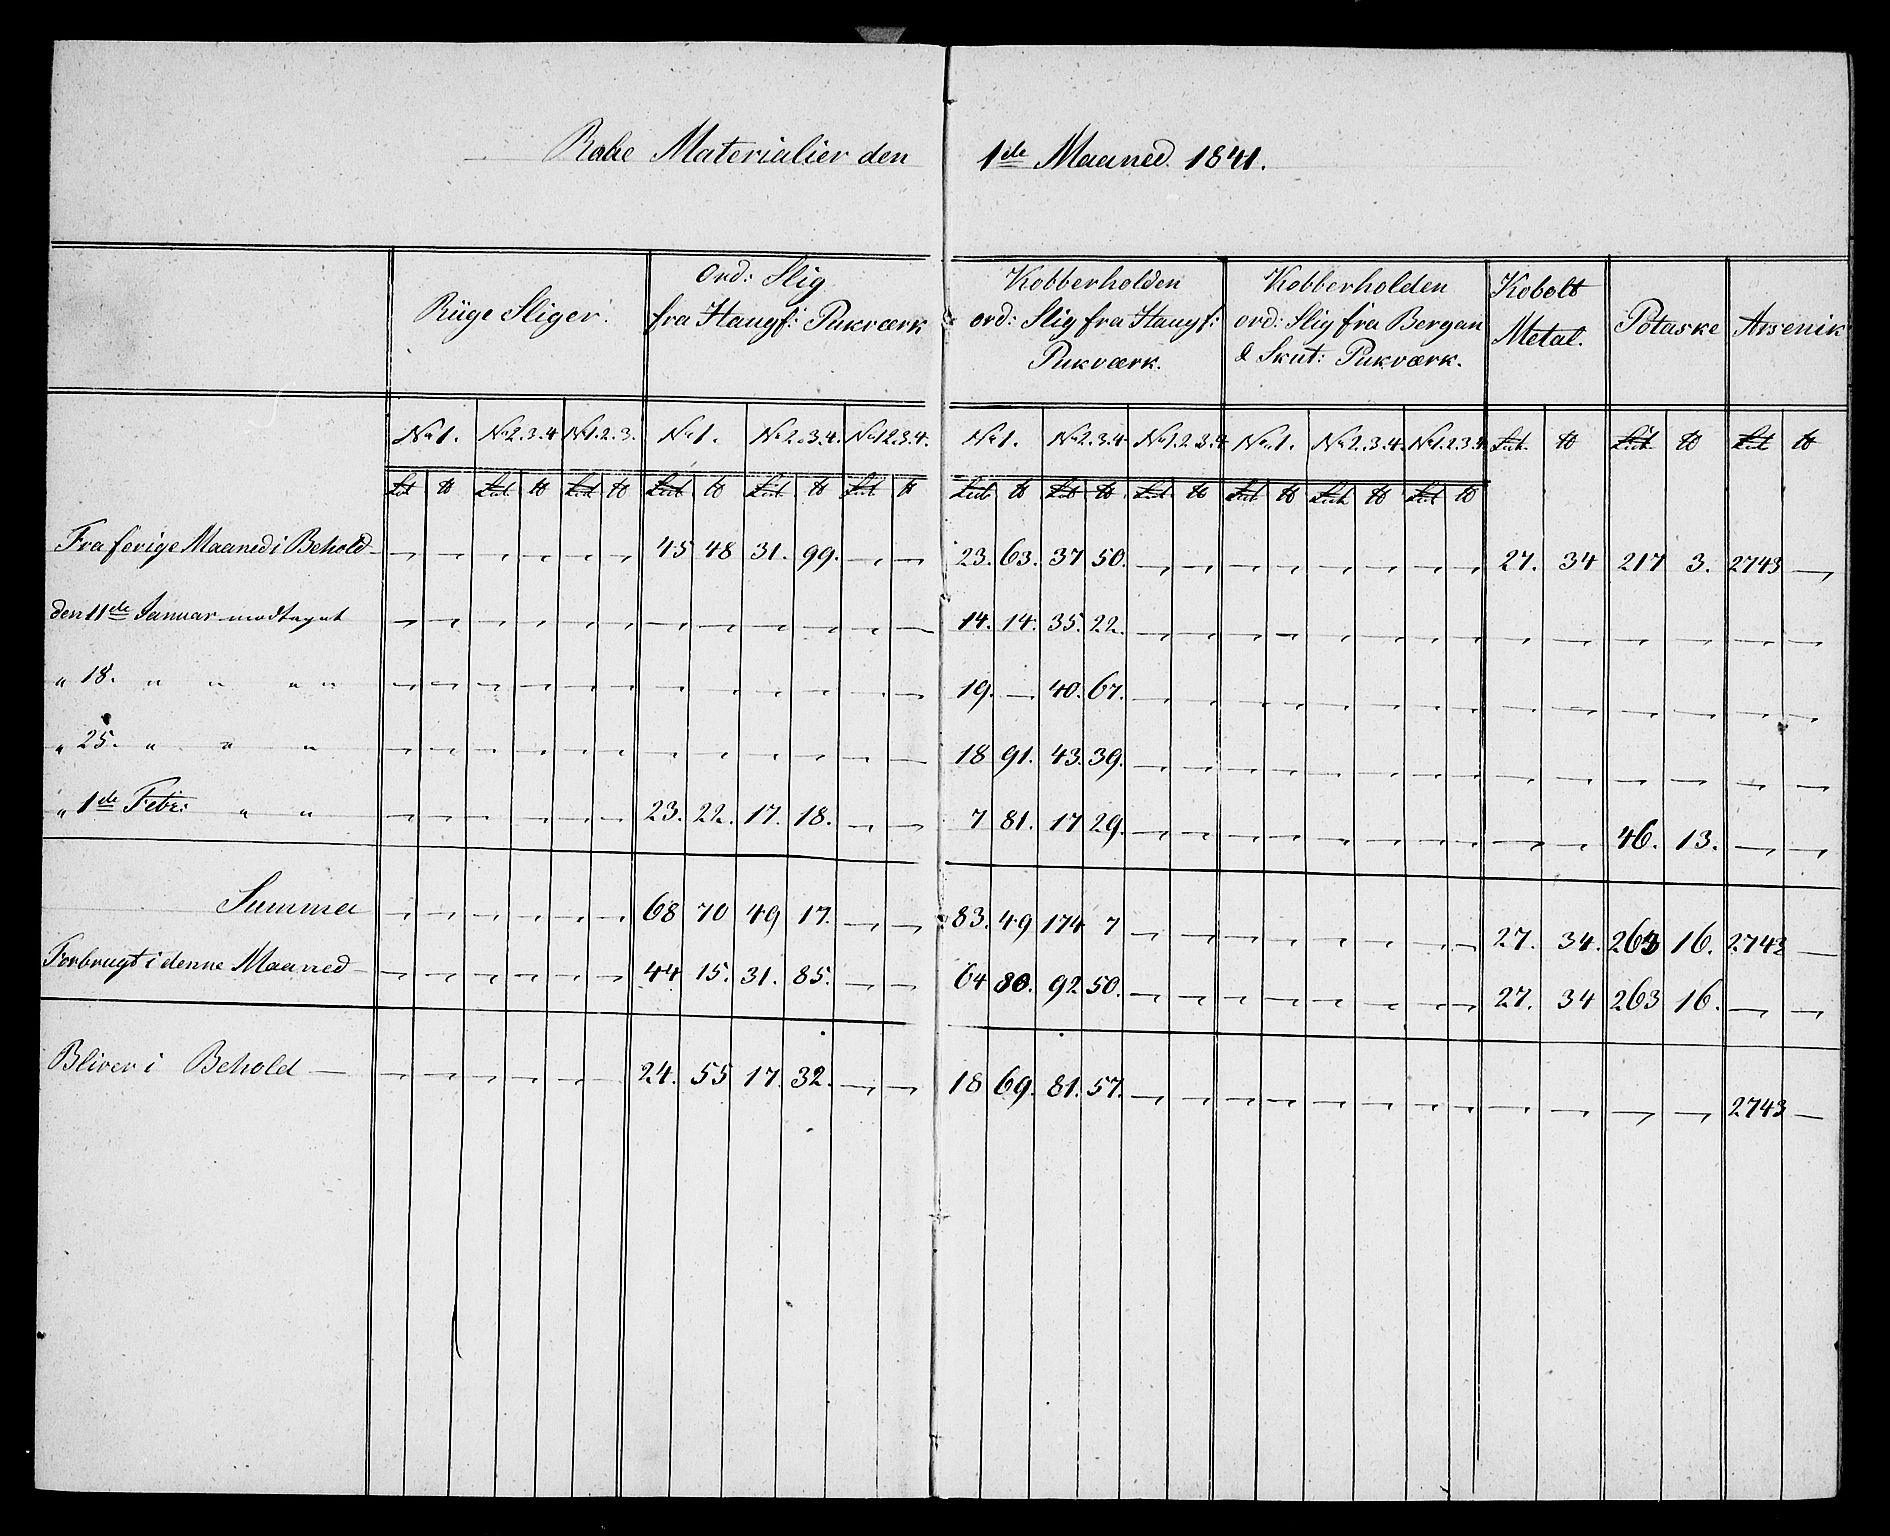 Rahe Materialier den 1de Maaned 1841.
Rüge Sliger: | Ord: Slig fra Haugf: Pukværk | Kobberholden ord: Slig fra Haugf: Pukværk. | Kobberholden ord: Slig fra Bergan & Skut: Pukværk. | Kobolt Metal. | Potaske | Arsenik
No 1. | No 2.3.4 | No 1.2.3. | No 1. | No 2.3.4. | No 1.2.3.4. | No 1. | No 2.3.4. | No 1.2.3.4 | No 1. | No 2.3.4. | No 1.2.3.4. | ℔ | ℔ | ℔
Fra forige Maaned i Behold — 45 48 31. 99. 23. 63. 37 50. 27. 34 217 3. 2743 —
den 11de Januar modtaget 14. 14. 35. 22.
" 18. " " " " 19. — 40. 67.
" 25. " " " 18 91. 43. 39.
" 1de Febr: " " 23. 22. 17. 18. 7 81. 17 29. 46. 13.
Summa 68 70 49 17. 83. 49 174 7 27. 34. 263 16. 2743 —
Forbrugt i denne Maaned — 44 15. 31. 85. 64 80. 92 50. 27. 34 263 16.
Bliver i Behold — 24. 55 17. 32. 18 69. 81. 57. 2743 —